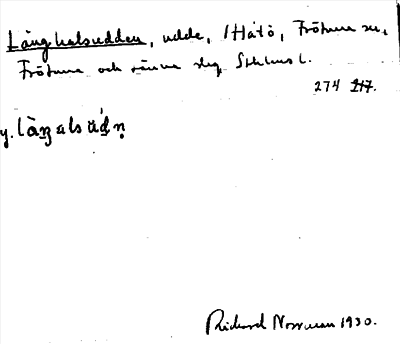 Långhalsudden, udde, /Håtö, Frötuna sn,
Frötuna och Länna slg, Sthlms l.
274 217.
y. là̀ŋalsúdn̥
Richard Norrman 1930.